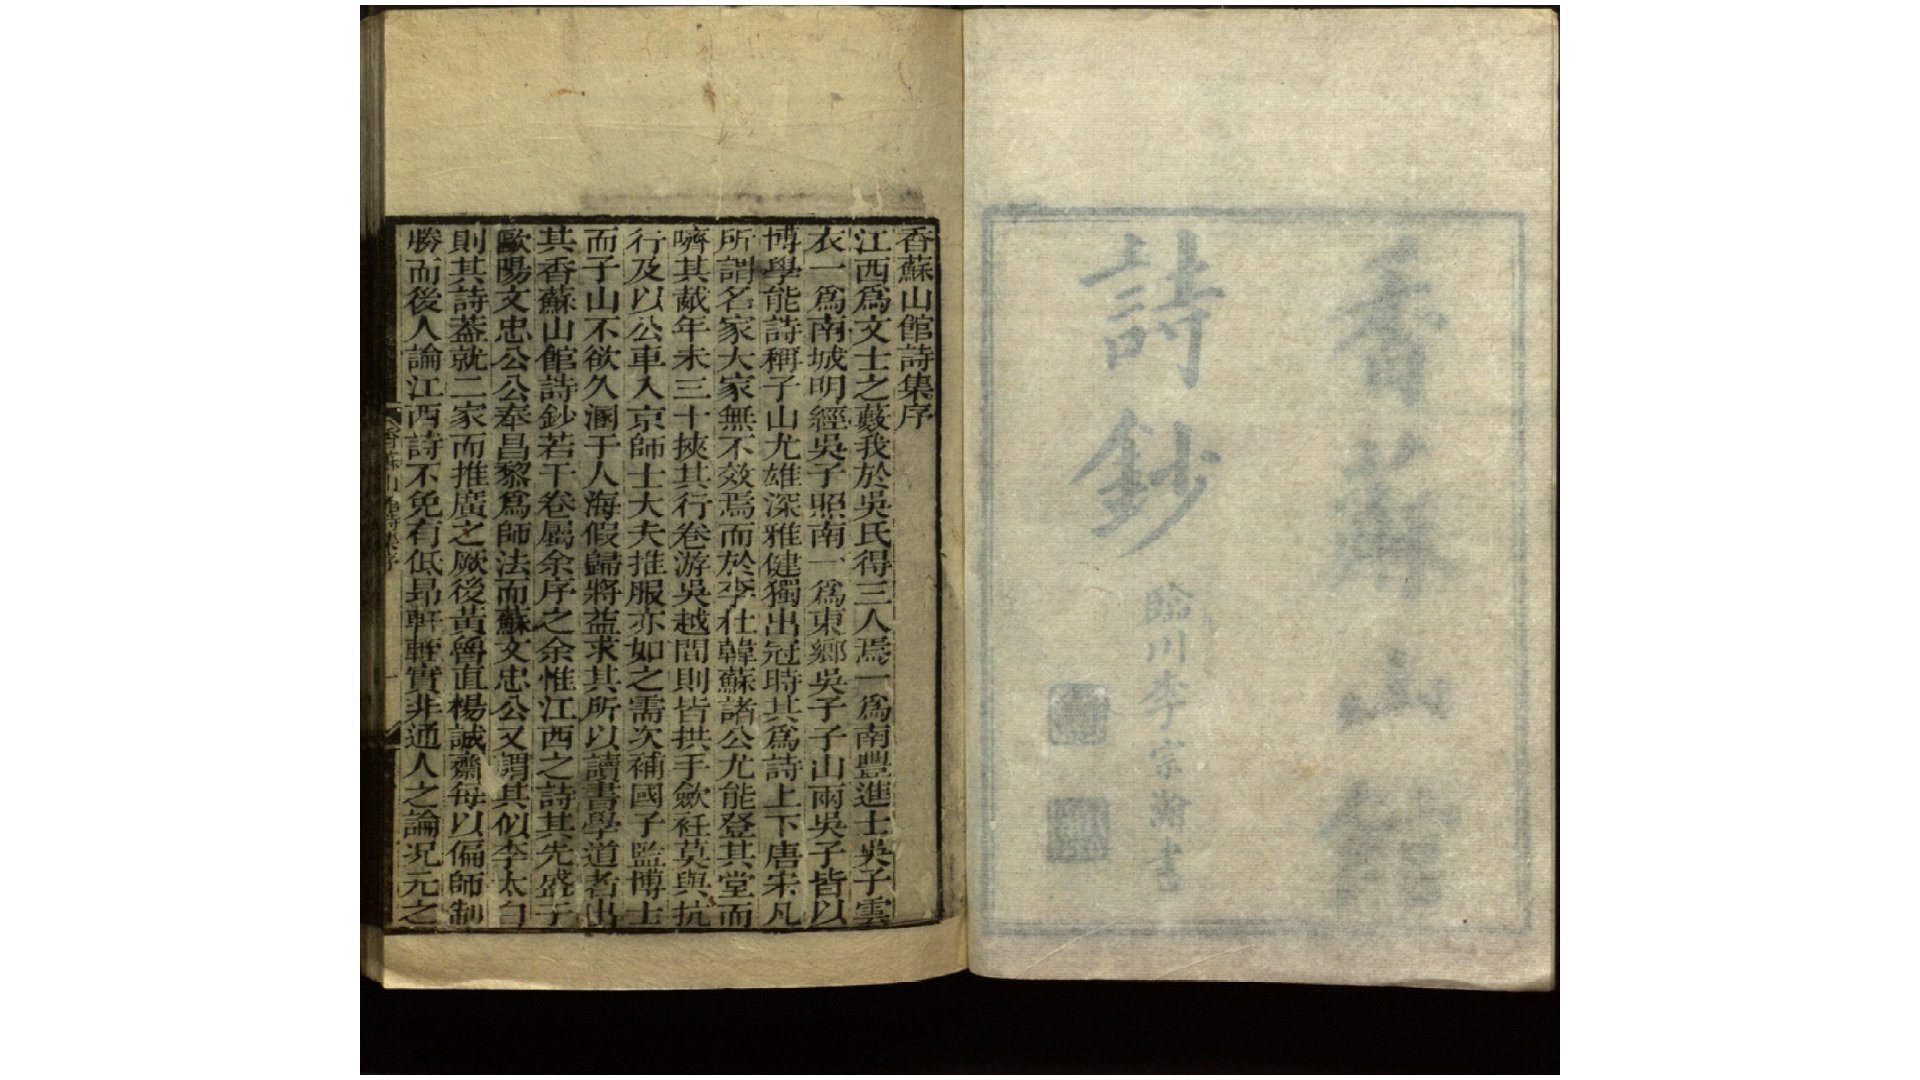 香蘇山館
詩鈔
臨川李宗瀚書
香蘇山館詩集序
江西爲文士之藪我於吳氏得三人焉一爲南豐進士吳子雲
衣一爲南城明經吳子照南一爲東鄉吳子子山兩吳子皆以
博學能詩稱子山尤雄深雅健獨出冠時其爲詩上下唐宋凡
所謂名家大家無不效焉而於李杜韓蘇諸公尤能登其堂而
嚌其胾年未三十挾其行卷游吳越間則皆拱手斂衽莫與抗
行及以公車入京師士大夫推服亦如之需次補國子監博士
而子山不欲久溷于人海假歸將益求其所以讀書學道者出
其香蘇山館詩鈔若干卷屬余序之余惟江西之詩其先盛于
歐陽文忠公公奉昌黎爲師法而蘇文忠公又謂其似李太白
則其詩葢就二家而推廣之厥後黃魯直楊誠齋每以偏師制
勝而後人論江西詩不免有低昂軒輊實非通人之論況元之
香蘇山館詩集序
一